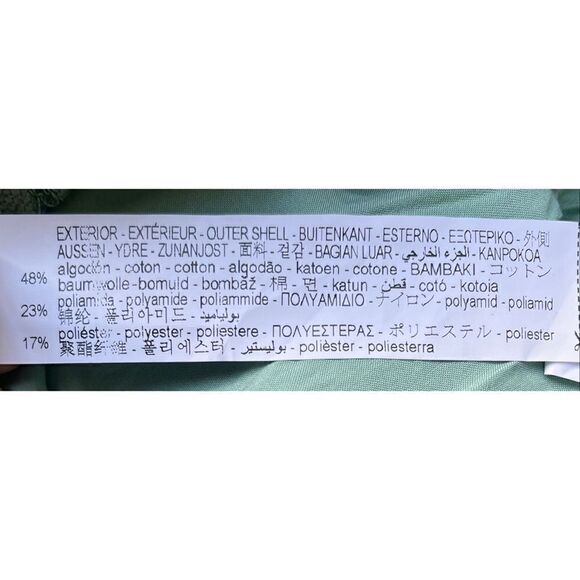 EXTERIOR - EXTÉRIEUR - OUTER SHELL - BUITENKANT - ESTERNO - ΕΞΩΤΕΡΙΚΟ - 外側
AUSSEN - YDRE - ZUNANJOST - 面料 - 겉감 - BAGIAN LUAR - الجزء الخارجي - KANPOKOA
algodón - coton - cotton - algodão - katoen - cotone - ΒΑΜΒΑΚΙ - コットン
48% baumwolle - bomuld - bombaž - 棉 - 면 - katun - قطن - cotó - kotoia
poliamida - polyamide - poliammide - ΠΟΛΥΑΜΙΔΙΟ - ナイロン - polyamid - poliamid
23% 锦纶 - 폴리아미드 - بولياميد
poliéster - polyester - poliestere - ΠΟΛΥΕΣΤΕΡΑΣ - ポリエステル - poliester
17% 聚酯纤维 - 폴리에스터 - بوليستير - polièster - poliesterra